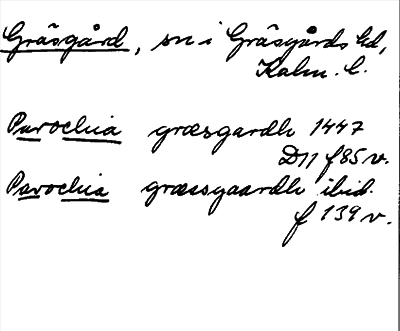 Gräsgård, sn i Gräsgårds hd,
Kalm. l.
Parochia græsgardh 1447
D11 f 85 v.
Parochia græssgaardh ibid.
f 139 v.